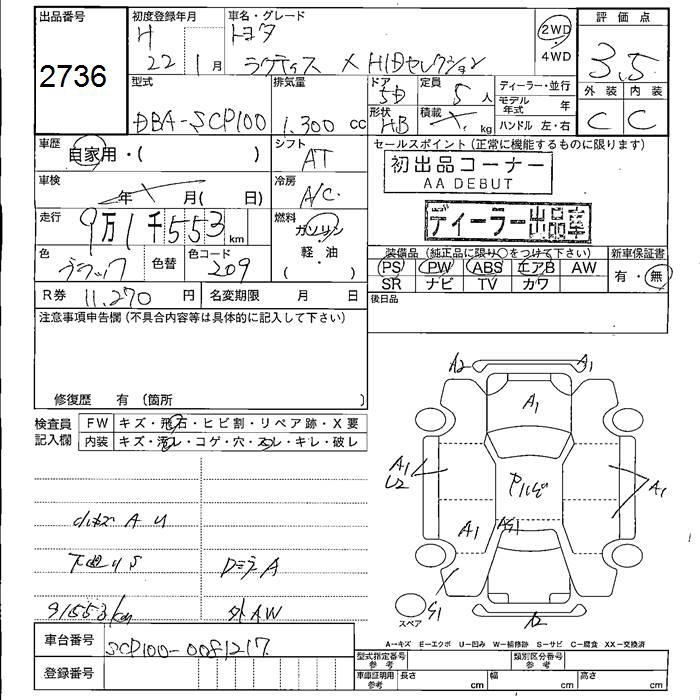 出品番号
2736
初度登録年月
H 22 1 月
車名・グレード
トヨタ
ラクティス X HIDセレクション
2WD
4WD
評価点
3.5
外装 内装
C C
型式
DBA-SCP100
排気量
1,300 cc
ドア
5D
形状
HB
定員
5 人
積載
kg
ディーラー・並行
モデル年式 年
ハンドル 左・右
車歴
自家用・( )
シフト
AT
車検
年 月( 日)
冷房
A/C
走行
9万1千553 km
燃料
ガソリン
軽・油
( )
色
ブラック
色替
色コード
209
R券 11,270 円
名変期限 月 日
セールスポイント(正常に機能するものに限ります)
初出品コーナー
AA DEBUT
ディーラー出品車
装備品(純正品に限り○をつけて下さい)
新車保証書
PS PW ABS エアB AW
SR ナビ TV カワ
有・無
後日品
注意事項申告欄(不具合内容等は具体的に記入して下さい)
修復歴 有 (箇所 )
検査員
記入欄
FW キズ・飛石・ヒビ割・リペア跡・X要
内装 キズ・汚レ・コゲ・穴・スレ・キレ・破レ
小キズ A U
下廻り S
91553km
ロミラ A
外AW
A2
A1
A1
A1
U2
A1
A1
A1
S1
A2
スペア
A—キズ E—エクボ U—凹み W—補修跡 S—サビ C—腐食 XX—交換済
車台番号
SCP100-0081217
登録番号
型式指定番号
参考
類別区分番号
参考
車庫証明用
参考
長さ cm
幅 cm
高さ cm